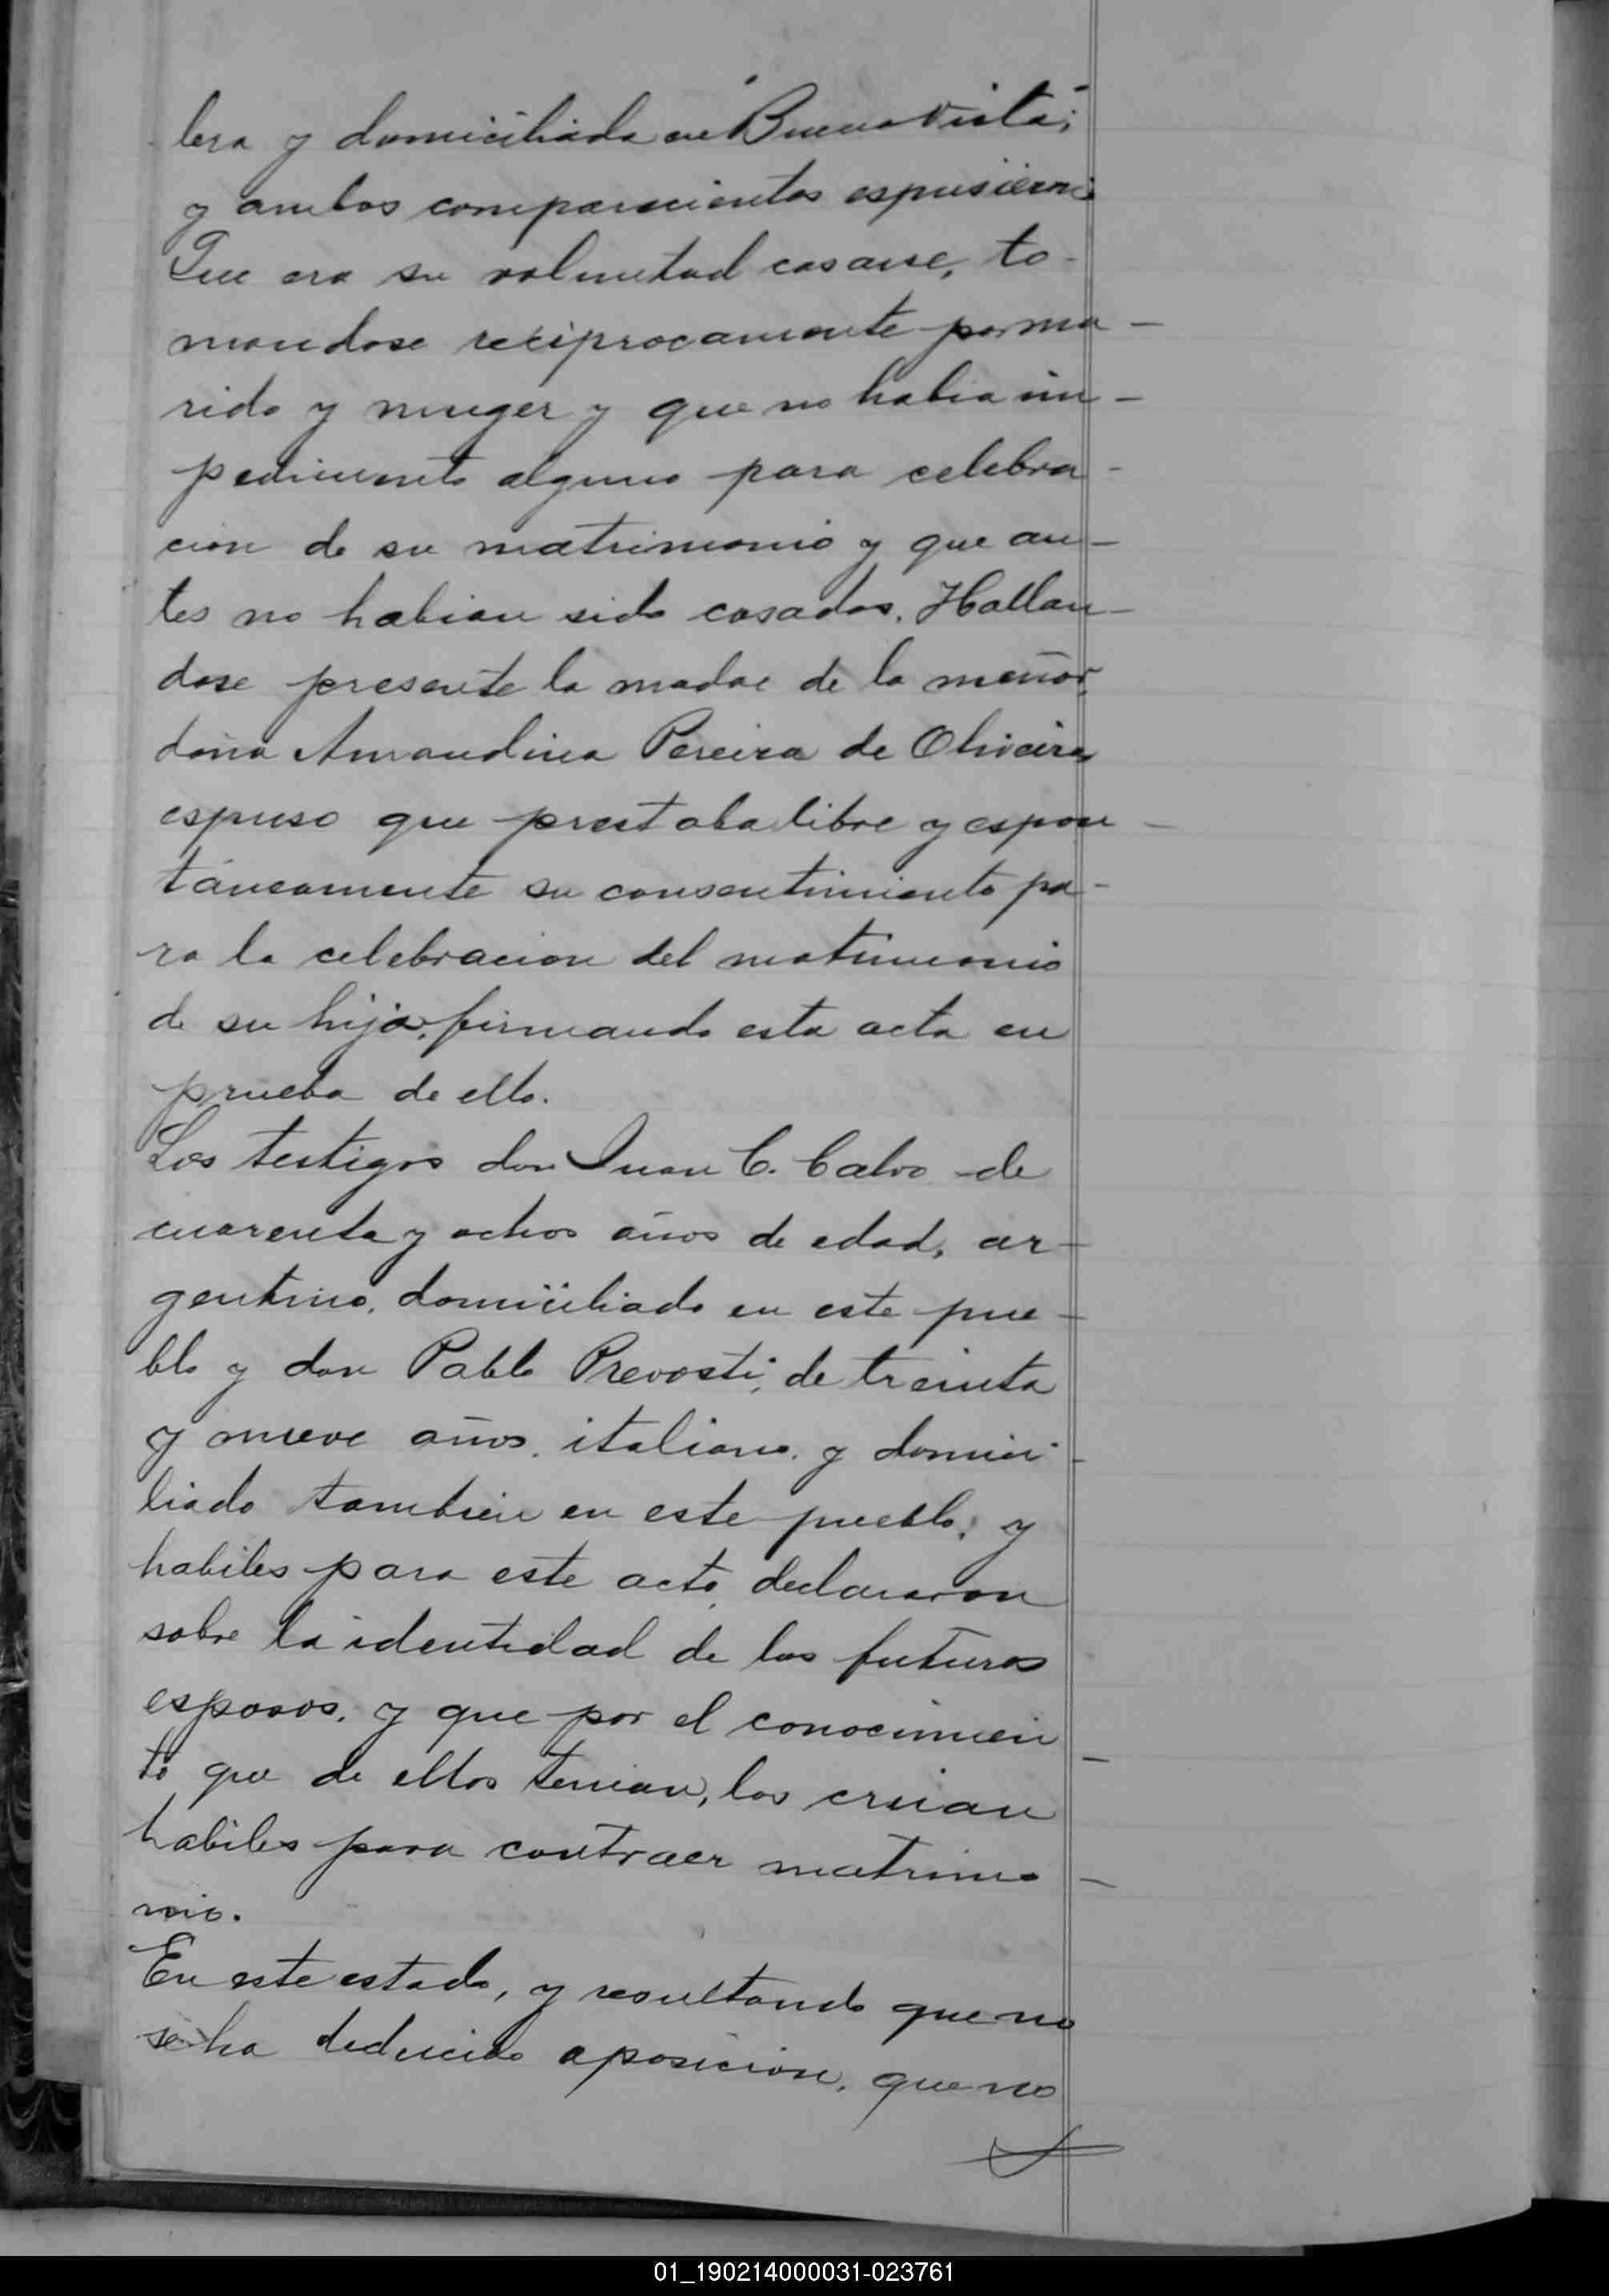 lera y domiciliada en "Buena Vista";
y ambos comparecientes espusieron:
Que era su voluntad casarse, to-
mandose reciprocamente por ma-
rido y muger y que no habia im-
pedimento alguno para celebra-
cion de su matrimonio y que an-
tes no habian sido casados. Hallan-
dose presente la madre de la menor,
doña Amandina Pereira de Oliveira,
espuso que prestaba libre y espon-
táneamente su consentimiento pa-
ra la celebracion del matrimonio
de su hija, firmando esta acta en
prueba de ello.
Los testigos don Juan C. Calvo de
cuarenta y ochos años de edad, ar-
gentino, domiciliado en este pue-
blo y don Pablo Prevosti, de treinta
y nueve años, italiano, y domici-
liado tambien en este pueblo; y
habiles para este acto, declararon
sobre la identidad de los futuros
esposos, y que por el conocimien-
to que de ellos tenian, los creian
habiles para contraer matrimo-
nio.
En este estado, y resultando que no
se ha deducido oposicion, que no
01_190214000031-023761